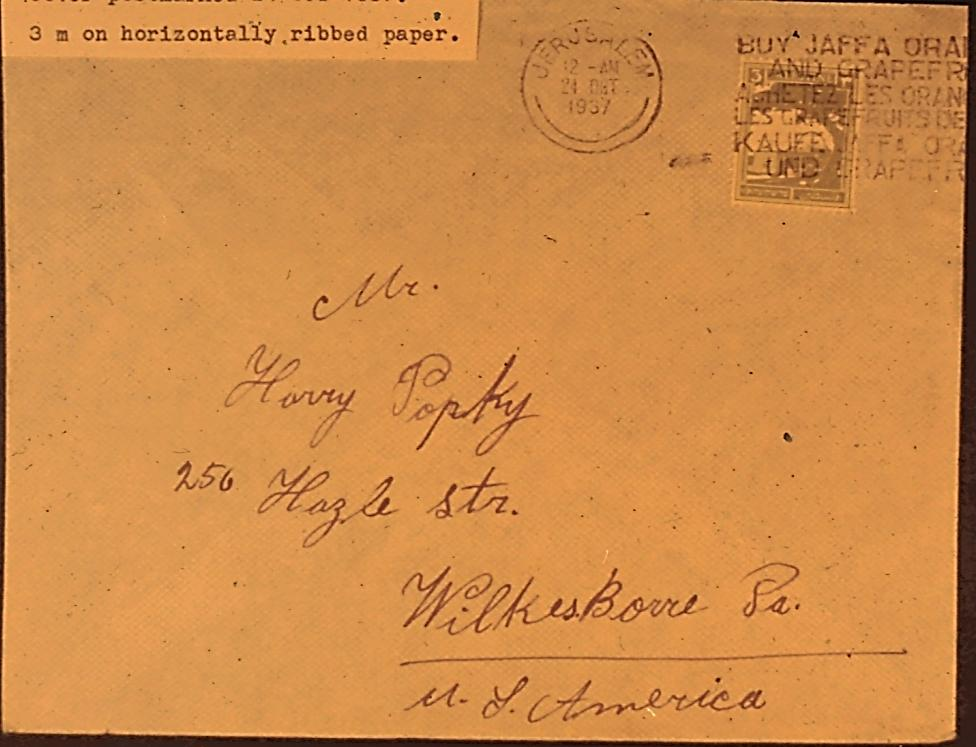 3 m on horizontally ribbed paper.
JERUSALEM
12 -AM
21 OCT
1937
BUY JAFFA ORA
AND GRAPEFR
ACHETEZ LES ORAN
LES GRAPEFRUITS DE
KAUFE JAFFA ORA
UND GRAPEFR
3
Mr.
Harry Popky
256 Hazle str.
Wilkes.Barre Pa.
U. S. America